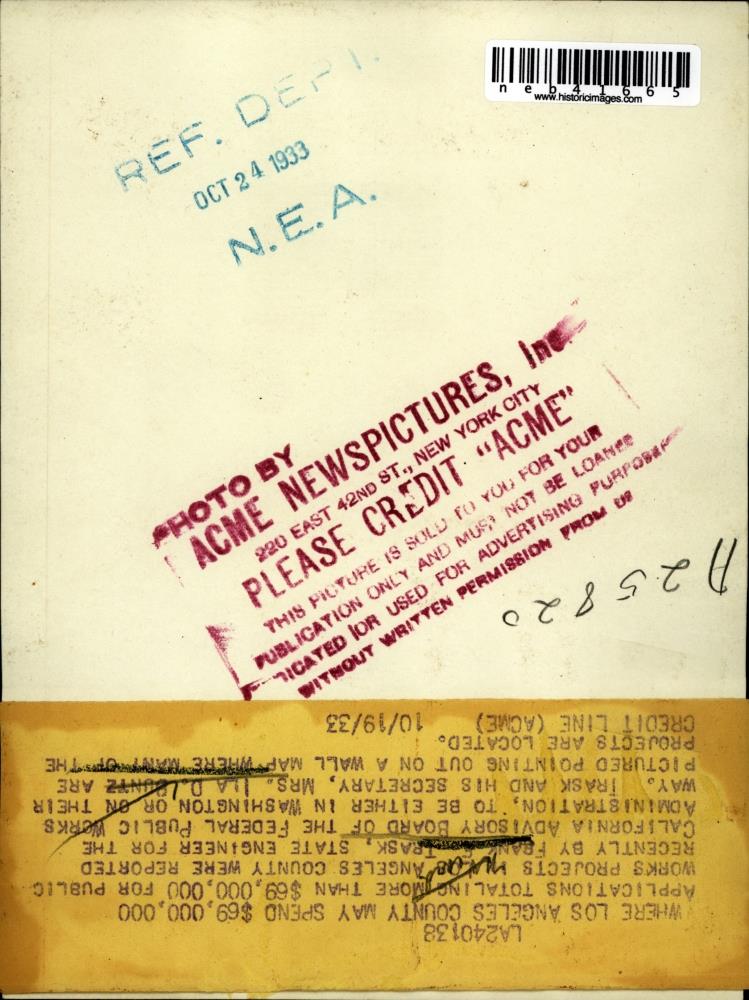 neb41665
www.historicimages.com
REF. DEPT.
OCT 24 1933
N.E.A.
PHOTO BY
ACME NEWSPICTURES, Inc
220 EAST 42ND ST., NEW YORK CITY
PLEASE CREDIT "ACME"
THIS PICTURE IS SOLD TO YOU FOR YOUR
PUBLICATION ONLY AND MUST NOT BE LOANED
OR USED FOR ADVERTISING PURPOSES
WITHOUT WRITTEN PERMISSION FROM US
A25820
LA240138
WHERE LOS ANGELES COUNTY MAY SPEND $69,000,000
APPLICATIONS TOTALING MORE THAN $69,000,000 FOR PUBLIC
WORKS PROJECTS IN LOS ANGELES COUNTY WERE REPORTED
RECENTLY BY FRANK E. TRASK, STATE ENGINEER FOR THE
CALIFORNIA ADVISORY BOARD OF THE FEDERAL PUBLIC WORKS
ADMINISTRATION, TO BE EITHER IN WASHINGTON OR ON THEIR
WAY. TRASK AND HIS SECRETARY, MRS. ILA D. KUNTZ ARE
PICTURED POINTING OUT ON A WALL MAP WHERE MANY OF THE
PROJECTS ARE LOCATED.
CREDIT LINE (ACME) 10/19/33